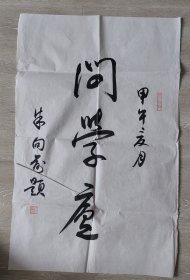 甲午夏月
問學廬
朱向前題